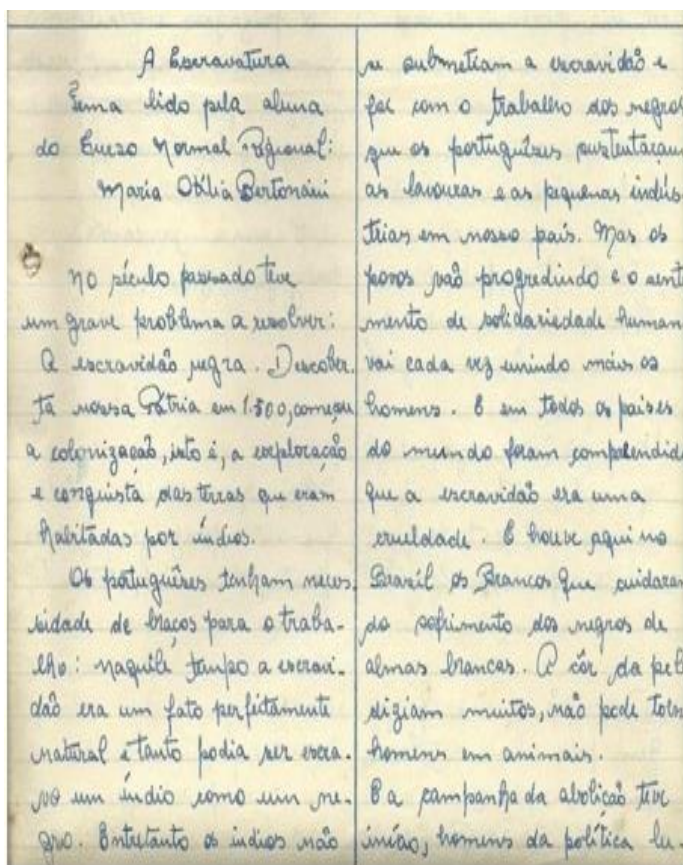 A Escravatura
Tema lido pela aluna
do Curso Normal Regional:
Maria Otília Bertonaini
No século passado teve
um grave problema a resolver:
A escravidão negra. Descober-
ta nossa Pátria em 1.500, começou
a colonização, isto é, a exploração
e conquista das terras que eram
habitadas por índios.
Os portuguêses tenham neces-
sidade de braços para o traba-
lho: naquele tempo a escravi-
dão era um fato perfeitamente
natural e tanto podia ser escra-
vo um índio como um ne-
gro. Entretanto os indios não
se submetiam a escravidão e
foi com o trabalho dos negros
que os portuguêses sustentaram
as lavouras e as pequenas indús-
trias em nosso país. Mas os
povos vão progredindo e o sent
mento de solidariedade human
vai cada vez unindo mais os
homens. E em todos os países
do mundo foram compreendid
que a escravidão era uma
crueldade. E houve aqui no
Brasil os Brancos que cuidaram
do sofrimento dos negros de
almas brancas. A côr da pele
diziam muitos, não pode torn
homens em animais.
E a campanha da abolição teve
início, homens da política lu-